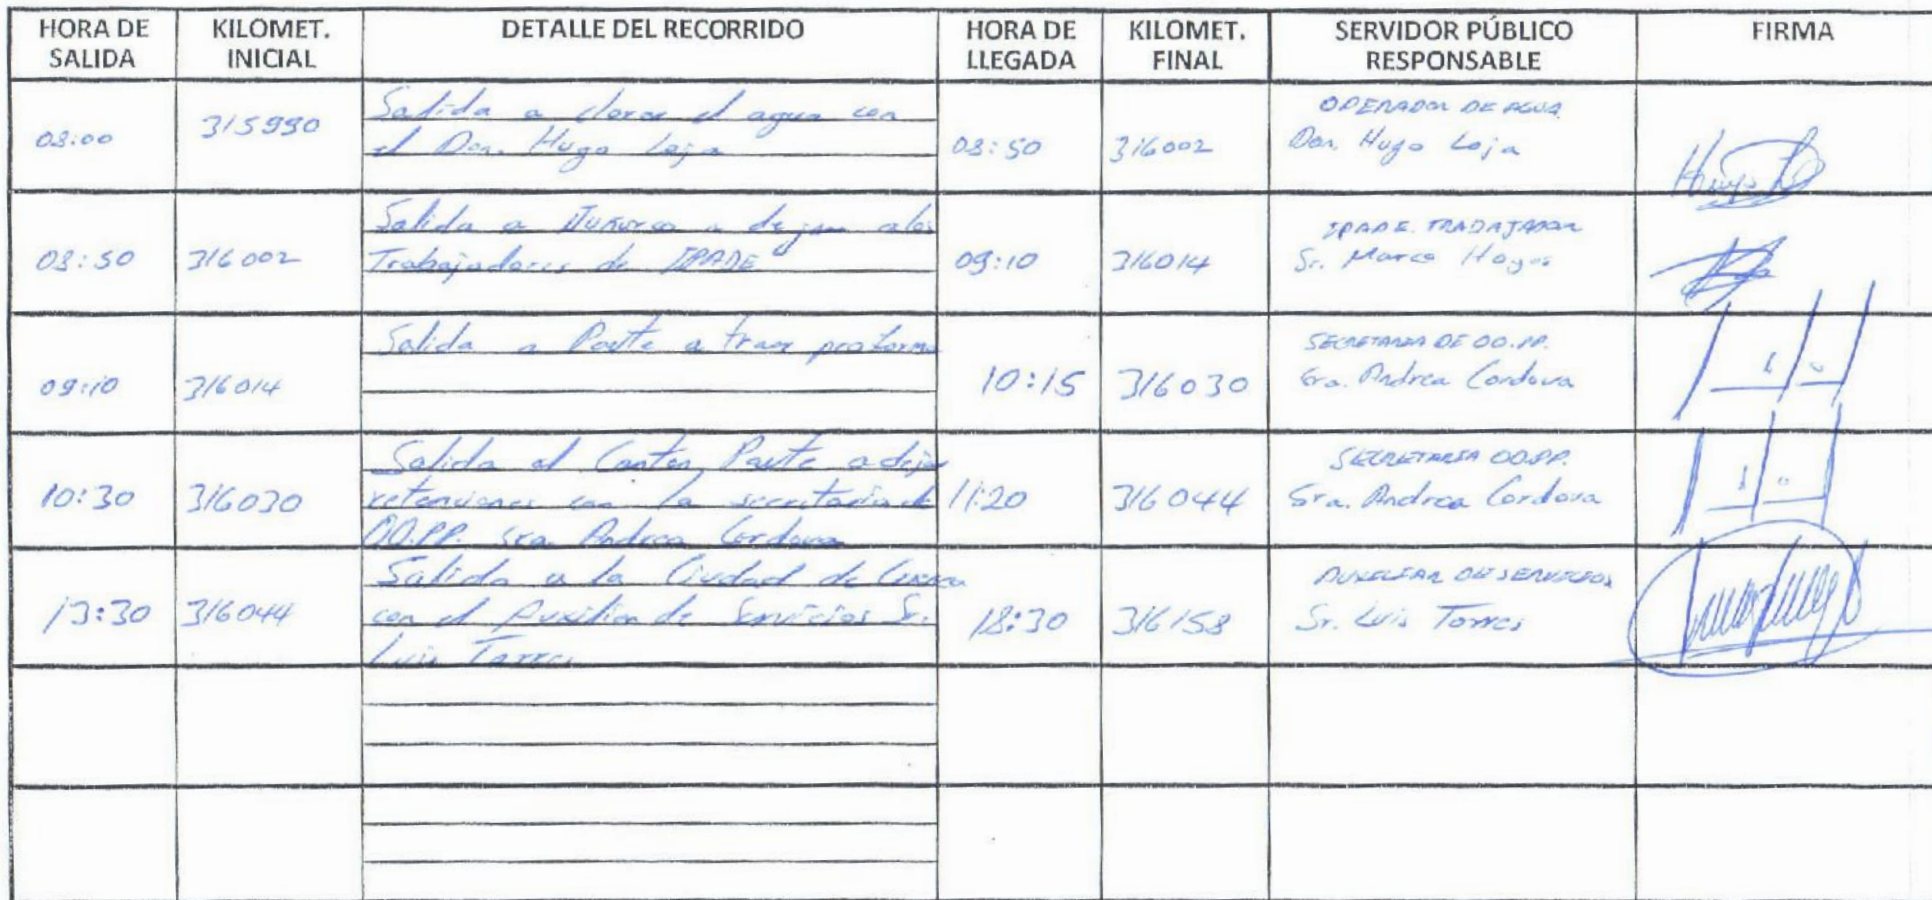 HORA DE SALIDA
KILOMET. INICIAL
DETALLE DEL RECORRIDO
HORA DE LLEGADA
KILOMET. FINAL
SERVIDOR PÚBLICO RESPONSABLE
FIRMA
08:00
315990
Salida a clorar el agua con
el Don. Hugo Loja
08:50
316002
OPERADOR DE AGUA
Don. Hugo Loja
08:50
316002
Salida a a dejar a los
Trabajadores de IPADE
09:10
316014
IPADE. TRABAJADOR
Sr. Marco
09:10
316014
Salida a Paute a traer proforma
10:15
316030
SECRETARIA DE OO.PP.
Sra. Andrea Cordova
10:30
316030
Salida al Canton Paute a dejar
retenciones con la secretaria de
OO.PP. Sra Andrea Cordova
11:20
316044
SECRETARIA OO.PP.
Sra. Andrea Cordova
13:30
316044
Salida a la Ciudad de Cuenca
con el Auxiliar de Servicios Sr.
Luis Torres
18:30
316158
AUXILIAR DE SERVICIOS
Sr. Luis Torres